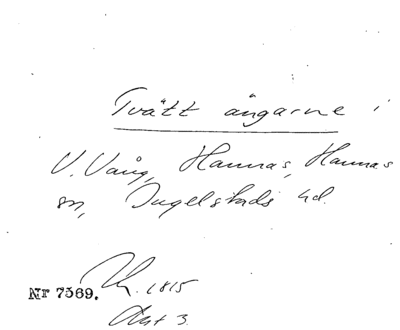 Tvätt ångarne i
V. Vång, Hannas, Hannas
sn, Ingelstads hd.
Nr 7569.
1815
Akt 3.